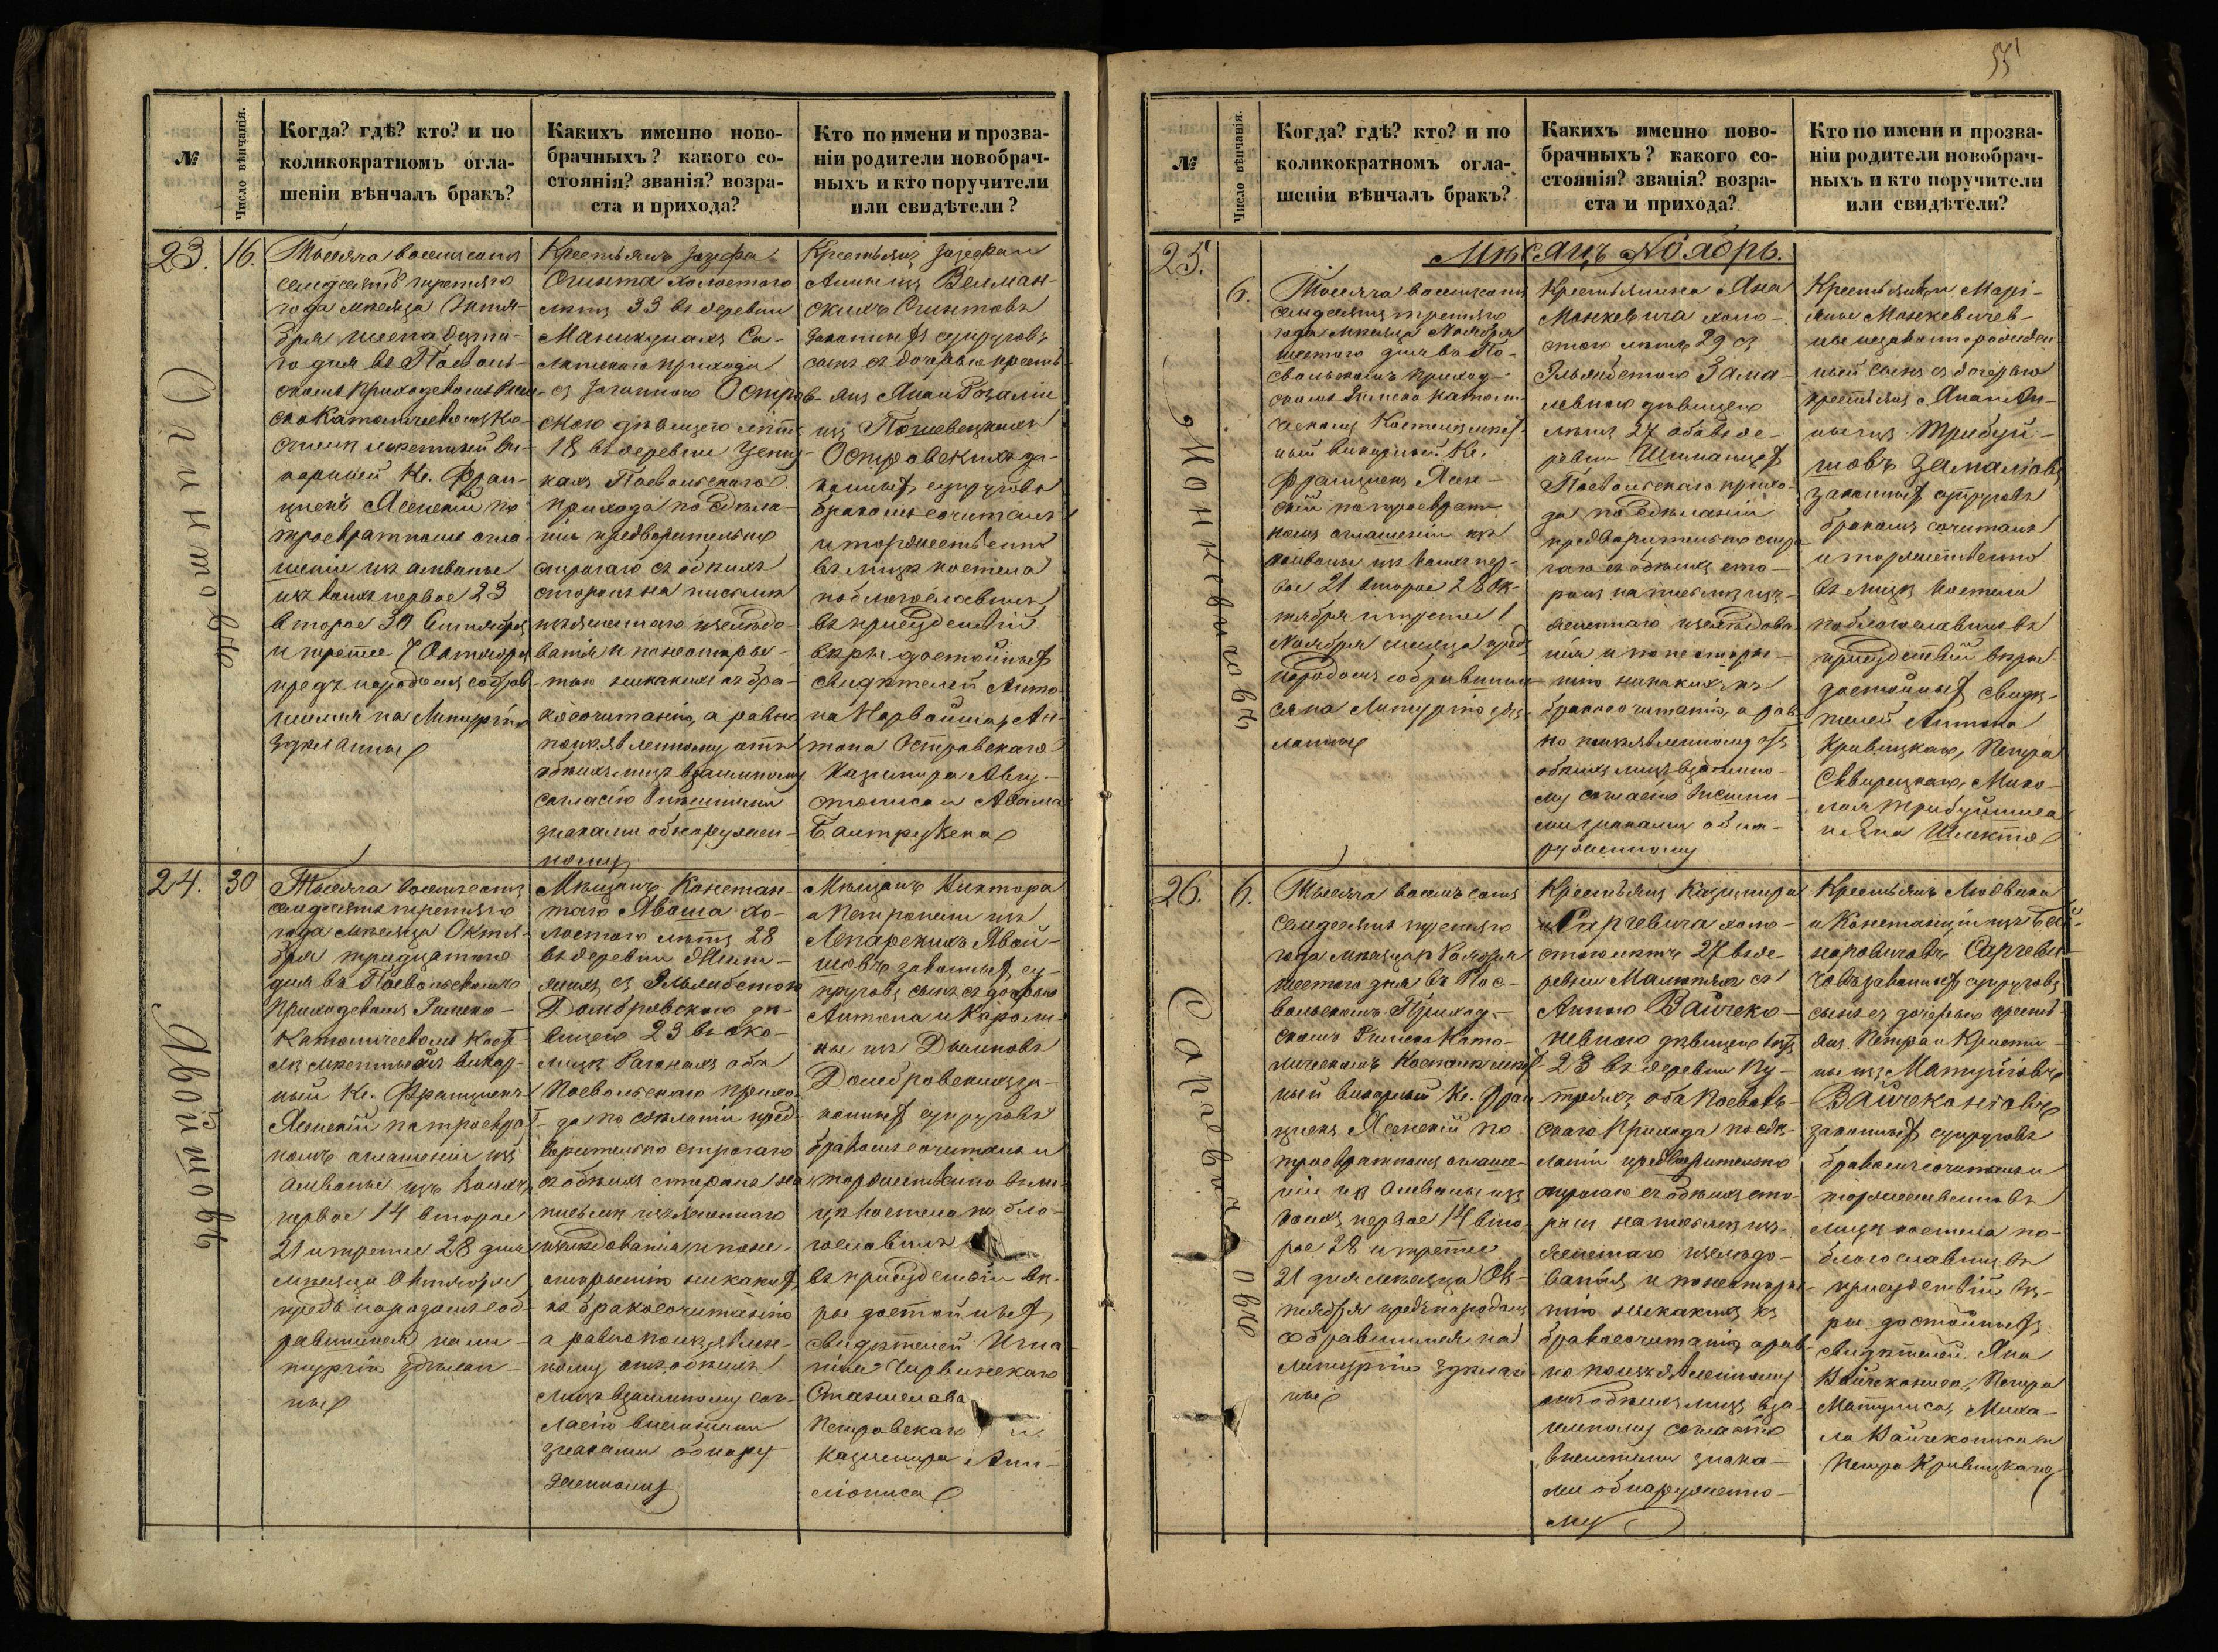 №
Число вѣнчанія.
Когда? гдѣ? кто? и по
коликократномъ огла-
шеніи вѣнчалъ бракъ?
Какихъ именно ново-
брачныхъ? какого со-
стоянія? званія? возра-
ста и прихода?
Кто по имени и прозва-
ніи родители новобрач-
ныхъ и кто поручители
или свидѣтели?
23.
16.
Тысяча восемьсотъ
семдесятъ третяго
года мѣсяца Октя-
бря шестнадцата-
го дня въ Поволь-
скомъ Приходскомъ Рим-
ско Католическомъ Ко-
стелѣ мѣстный Ви-
карный Кс. Фран-
цискъ Ясенскій по
троекратномъ огла-
шеніи изъ амвоны
изъ коихъ первое 23
второе 30 Сентября
и третее 7 Октября
предъ народомъ собрав-
шимся на Литургію
здѣланные
Крестьянъ Іозефа
Огинта холостаго
лѣтъ 33 въ деревни
прихода
18 въ деревни
Поевольскаго
прихода по здѣла-
ніи предварительно
строгаго съ обѣихъ
сторонъ на письмѣ
изъясненнаго изслѣдо-
ванія и понеоткры-
тію никакихъ къ бра-
косочитанію, а равно
поизъявленному отъ
обѣихъ лицъ взаимному
согласію внешними
знаками обнаружен-
ному
Крестьянъ Іозефа и
Анны изъ Велман-
скихъ Огинтовъ
законныхъ супруговъ
сынъ съ дочерью кресть-
янъ Яна и Розаліи
изъ
Островскихъ за-
конныхъ супруговъ
бракомъ сочиталъ
и торжественно
въ лицѣ костела
поблагославилъ
въ присудствіи
вѣры достойныхъ
свидѣтелей Анто-
на Нарвойша, Ан-
тона Островскаго
Казимира Авгу-
стониса и Адама
24.
30
Тысяча восемьсотъ
семдесятъ третяго
года мѣсяца Октя-
бря тридцатаго
дня въ Поевольскомъ
Приходскомъ Римско-
Католическомъ Косте-
лѣ мѣстный викар-
ный Кс. Францискъ
Ясенскій по троекра-
номъ оглашеніи изъ
амвоны изъ коихъ
первое 14 второе
21 и третее 28 дня
мѣсяца Октября
предъ народомъ соб-
равшимся на ли-
тургію здѣлан-
ные
Мѣщанъ Констан-
таго Явоша хо-
лостаго лѣтъ 28
въ деревни
съ Эльжбетою
Домбровскою дѣ-
вицею 23 въ око-
лицѣ оба
Поевольскаго прихо-
да по здѣланіи пред-
варительно строгаго
съ обѣихъ сторонъ на
письмѣ изъясненнаго
изслѣдованія и поне-
открытію никакихъ
къ бракосочитанію
а равно поизъявлен-
ному отъ обѣихъ
лицъ взаимному сог-
ласію внешними
знаками обнару-
женному
Мѣщанъ Виктора
и Петронели изъ
Лепарскихъ Явой-
шовъ законныхъ су-
пруговъ сынъ съ дочерью
Антона и Кароли-
ны изъ Дыминовъ
Домбровскихъ за-
конныхъ супруговъ
бракомъ сочиталъ и
торжественно въ ли-
цѣ костела побла-
гославилъ
въ присудствіи вѣ-
ры достойныхъ
свидѣтелей Игна-
тія Червинскаго
Станислава
Петровскаго и
Казимира
Огинтовъ
Явойшовъ
55
№
Число вѣнчанія.
Когда? гдѣ? кто? и по
коликократномъ огла-
шеніи вѣнчалъ бракъ?
Какихъ именно ново-
брачныхъ? какого со-
стоянія? званія? возра-
ста и прихода?
Кто по имени и прозва-
ніи родители новобрач-
ныхъ и кто поручители
или свидѣтели?
Мѣсяцъ Ноябрь.
25.
6.
Тысяча восемьсотъ
семдесятъ третяго
года мѣсяца Ноября
шестаго дня въ По-
свольскомъ приход-
скомъ Римско католи-
ческомъ Костелѣ мѣст-
ный викарный Кс.
Францискъ Ясен-
скій по троекрат-
номъ оглашеніи изъ
амвоны изъ коихъ пер-
вое 21 второе 28 Ок-
тября и третее 1
Ноября мѣсяца предъ
народомъ собравшим-
ся на Литургію здѣ-
ланные
Крестьянина Яна
Монкевича холо-
стаго лѣтъ 29 съ
Эльжбетою Зама-
левною дѣвицею
лѣтъ 27 оба въ де-
ревни Шиманцахъ
Поевольскаго прихо-
да по здѣланіи
предварительно стро-
гаго съ обѣихъ сто-
ронъ на письмѣ изъ-
ясненнаго изслѣдова-
нія и понеоткры-
тію никакихъ къ
бракосочитанію, а рав-
но поизъявленному отъ
обѣихъ лицъ взаимно-
му согласію внешни-
ми знаками обна-
руженному
Крестьянки Марі-
яны Монкевичев-
ны незаконнорожден-
ный сынъ съ дочерью
крестьянъ Яна и Ан-
ны изъ Трибуй-
шовъ Замаліовъ
законныхъ супруговъ
бракомъ сочиталъ
и торжественно
въ лицѣ костела
поблагославилъ въ
присудствіи вѣры
достойныхъ свидѣ-
телей Антона
Кривицкаго, Петра
Свирецкаго, Мико-
лая Трибуйшиса
и Яна
26.
6.
Тысяча восемьсотъ
семдесятъ третяго
года мѣсяца Ноября
шестаго дня въ Пос-
вольскомъ Приход-
скомъ Римско Като-
лическомъ Костелѣ мѣст-
ный викарный Кс. Фран-
цискъ Ясенскій по
троекратномъ оглаше-
ніи изъ Амвоны изъ
коихъ первое 14 вто-
рое 28 и третее
21 дня мѣсяца Ок-
тября предъ народомъ
собравшимся на
литургію здѣлан-
ные
Крестьянъ Казимира
Саргевича холо-
стаго лѣтъ 27 въ де-
ревни съ
Анною Вайчеко-
нювною дѣвицею лѣтъ
23 въ деревни Пу-
оба Поеволь-
скаго Прихода по здѣ-
ланіи предварительно
строгаго съ обѣихъ сто-
ронъ на письмѣ изъ-
ясненнаго изслѣдо-
ванія и понеоткры-
тію никакихъ къ
бракосочитанію а рав-
но поизъявленному
отъ обѣихъ лицъ вза-
имному согласію
внешними знака-
ми обнаруженно-
му
Крестьянъ Людвика
и Констанціи изъ
Саргеви-
човъ законныхъ супруговъ
сынъ съ дочерью кресть-
янъ Петра и Кристи-
ны изъ
Вайчеконіовъ
законныхъ супруговъ
бракомъ сочиталъ и
торжественно въ
лицѣ костела по-
благославилъ въ
присудствіи вѣ-
ры достойныхъ
свидѣтелей Яна
Вайчекониса, Петра
Матуиса, Миха-
ла Вайчекониса и
Петра Кривицкаго
Монкевичовъ
Саргевичовъ